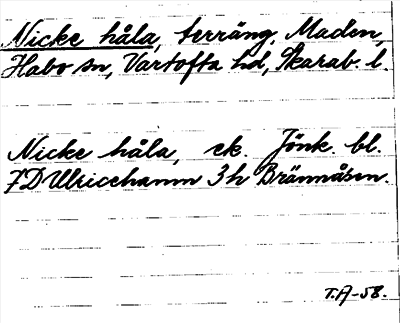 Nicke håla, terräng, Maden,
Habo sn, Vartofta hd, Skarab. l.
Nicke håla, ek. Jönk. bl.
7D Ulricehamn 3h Brännåsen.
T.A-58.